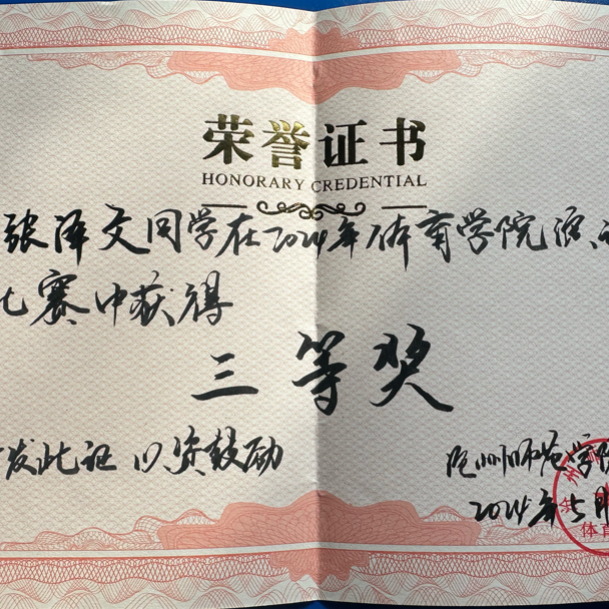 荣誉证书
HONORARY CREDENTIAL
张泽文同学在2024年体育学院演
比赛中获得
三等奖
发此证 以资鼓励
沧州师范学院
2024年5月
体育